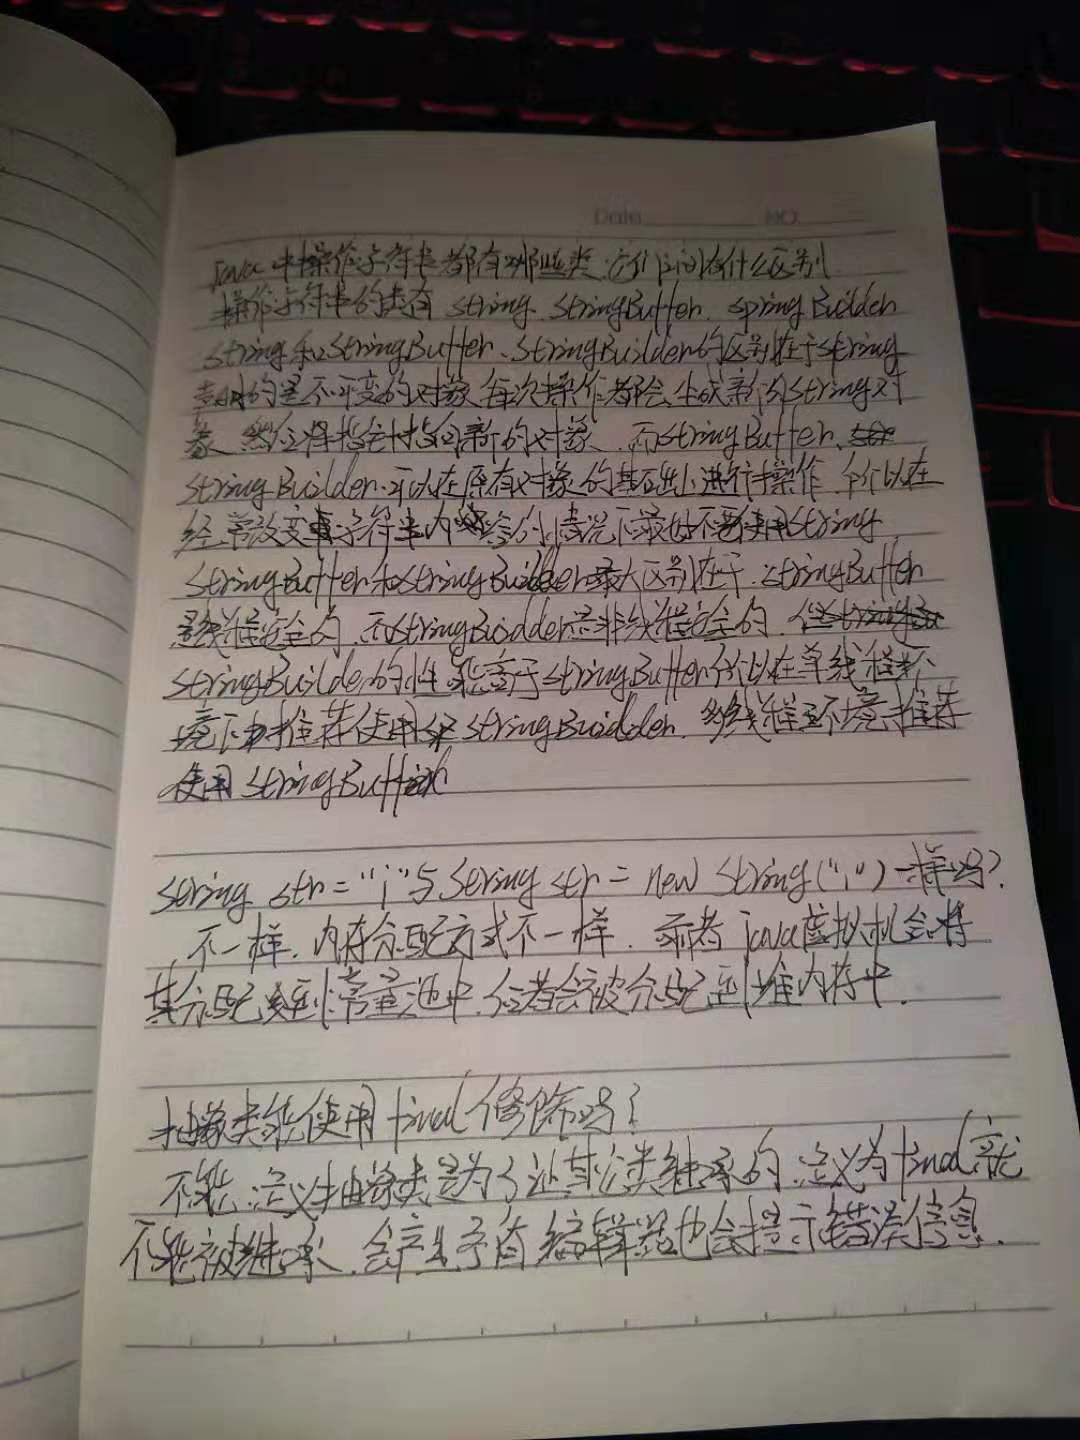 Date NO
java中操作字符串都有哪些类,它们之间有什么区别
操作字符串的类有 String、StringBuffer、SpringBuilder
String和StringBuffer、StringBuilder的区别在于String
声明的是不可变的对象,每次操作都会生成新的String对
象,然后将指针指向新的对象,而StringBuffer、
StringBuilder可以在原有对象的基础上进行操作,所以在
经常改变字符串内容的情况下最好不要使用String
StringBuffer和StringBuilder最大区别在于,StringBuffer
是线程安全的,而StringBuilder是非线程安全的,
StringBuilder的性能高于StringBuffer所以在单线程环
境下推荐使用 StringBuilder,多线程环境推荐
使用 StringBuffer
String str = "i"与String str = new String("i")一样吗?
不一样,内存分配方式不一样,前者java虚拟机会将
其分配到常量池中,后者会被分配到堆内存中.
抽象类能使用final修饰吗?
不能,定义抽象类是为了让其他类继承的,定义为final就
不能被继承,会产生矛盾 编辑器也会提示错误信息.